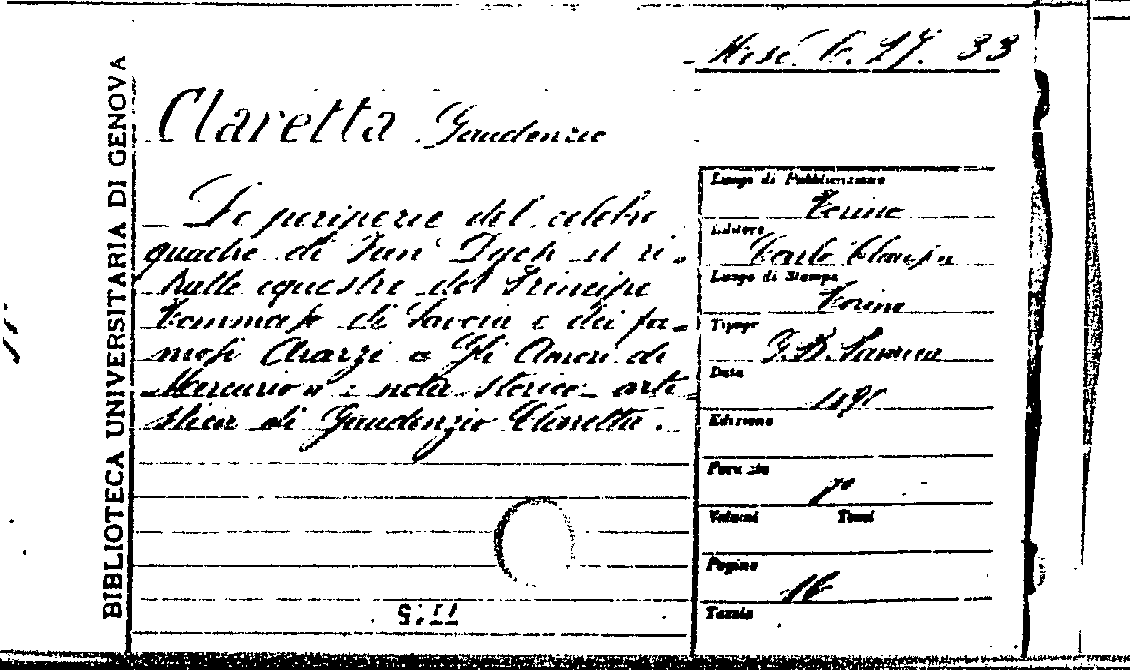 BIBLIOTECA UNIVERSITARIA DI GENOVA
Misc. C. 27. 33
Claretta Gaudenzio
Le peripezie del celebre
quadro di Van Dyck il ri-
tratto equestre del Principe
Tommaso di Savoia e dei fa-
mosi Arazzi "Gli Amori di
Mercurio": nota storico-arti-
stica di Gaudenzio Claretta.
Luogo di Pubblicazione
Torino
Editore
Carlo Clausen
Luogo di Stampa
Torino
Tipogr.
G. B. Paravia
Data
Edizione
Formato
8°
Volumi Tomi
Pagine
16
Tavole